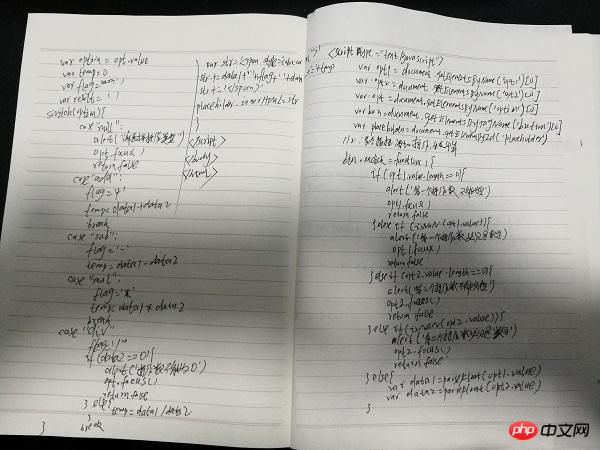 var option = opt.value
var temp=0
var flag=
var result=''
switch(option){
case "null":
alert('请选择操作类型')
opt.focus()
return false
case "add":
flag='+'
temp=data1+data2
break
case "sub":
flag='-'
temp=data1-data2
case "mul":
flag='*'
temp=data1*data2
break
case "div"
flag='/'
if (data2==0){
alert('操作数不能为0')
opt.focus()
return false
} else{
temp=data1/data2
}
break
}
var str=<span style=
str+=data1+''+flag+''+data
str+='</span>'
placeholder.innerHTML=str
</script>
</body>
</html>
<script type="text/javascript">
var opt1=document.getElementsByName('opt1')[0]
var opt2=document.getElementsByName('opt2')[0]
var opt=document.getElementsByName('option')[0]
var btn=document.getElementsByTagName('button')[0]
var placeholder=document.getElementById('placeholder')
btn.onclick=function(){
if(opt1.value.length==0){
alert('第一个操作数不能为空')
opt1.focus()
return false
}else if(isNaN(opt1.value)){
alert('第一个操作数必须是数字')
opt1.focus()
return false
}else if(opt2.value.length==0){
alert('第二个操作数不能为空')
opt2.focus()
return false
}else if(isNaN(opt2.value)){
alert('第二个操作数必须是数字')
opt2.focus()
return false
}else{
var data1=parseFloat(opt1.value)
var data2=parseFloat(opt2.value)
}
php 中文网